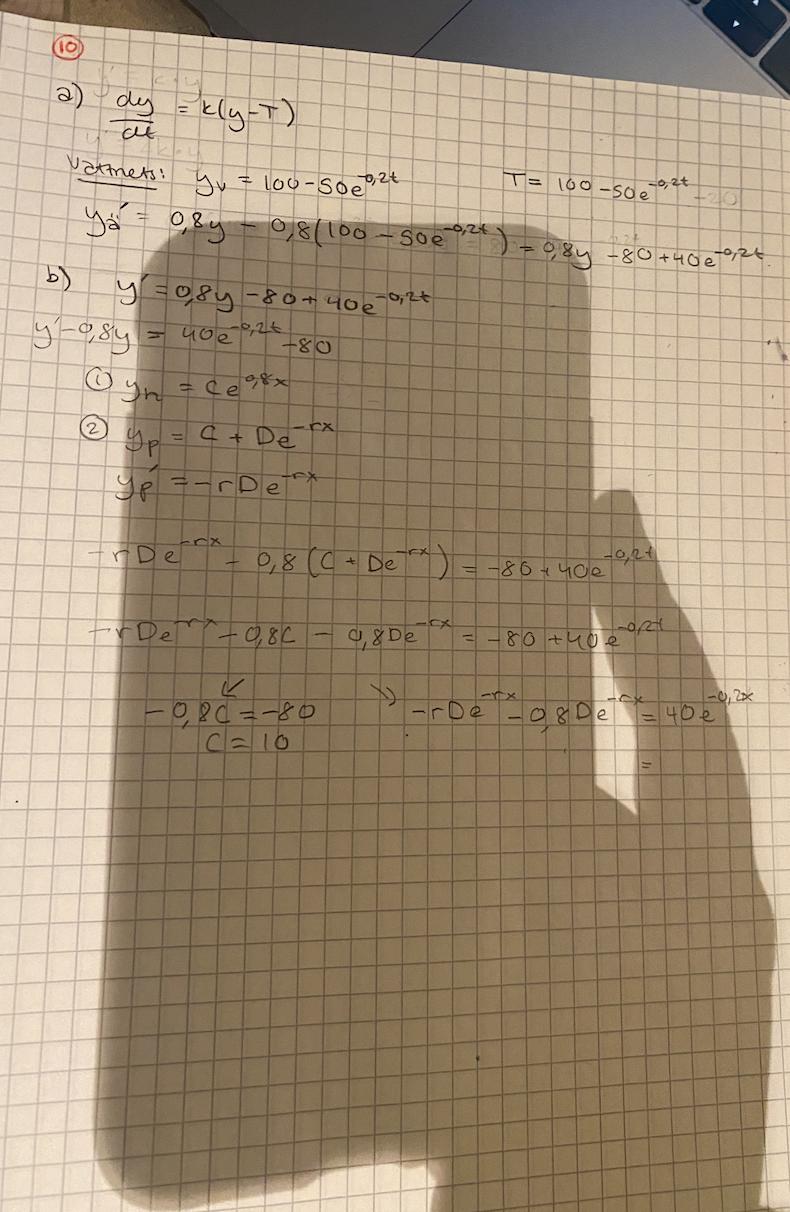 10
a) dy/dt = k(y-T)
Vattnets: yᵥ = 100-50e^-0,2t T = 100-50e^-0,2t
yä' = 0,8y - 0,8(100-50e^-0,2t) = 0,8y -80+40e^-0,2t.
b) y' = 0,8y -80+40e^-0,2t
y'-0,8y = 40e^-0,2t -80
① yₕ = Ce^0,8x
② yₚ = C + De^-rx
yₚ' = -rDe^-rx
-rDe^-rx - 0,8(C + De^-rx) = -80+40e^-0,2t
-rDe^-rx - 0,8C - 0,8De^-rx = -80+40e^-0,2t
↙ ↘
-0,8C = -80 -rDe^-rx - 0,8De^-rx = 40e^-0,2x
C = 10 =